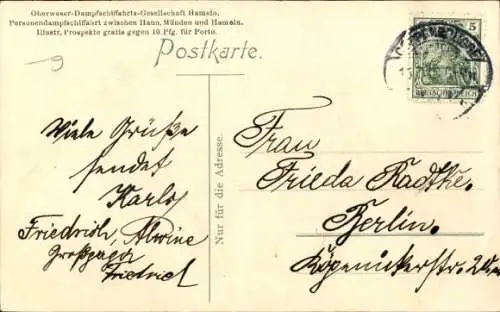 Oberweser-Dampfschiffahrts-Gesellschaft Hameln.
Personendampfschiffahrt zwischen Hann. Münden und Hameln.
Illustr. Prospekte gratis gegen 10 Pfg. für Porto.
Postkarte.
9
5
DEUTSCHES REICH
Viele Grüße
sendet
Karlos
Friedrich, Alwine
Nur für die Adresse.
Frau
Frieda Radtke.
Berlin.
Köpenickerstr.